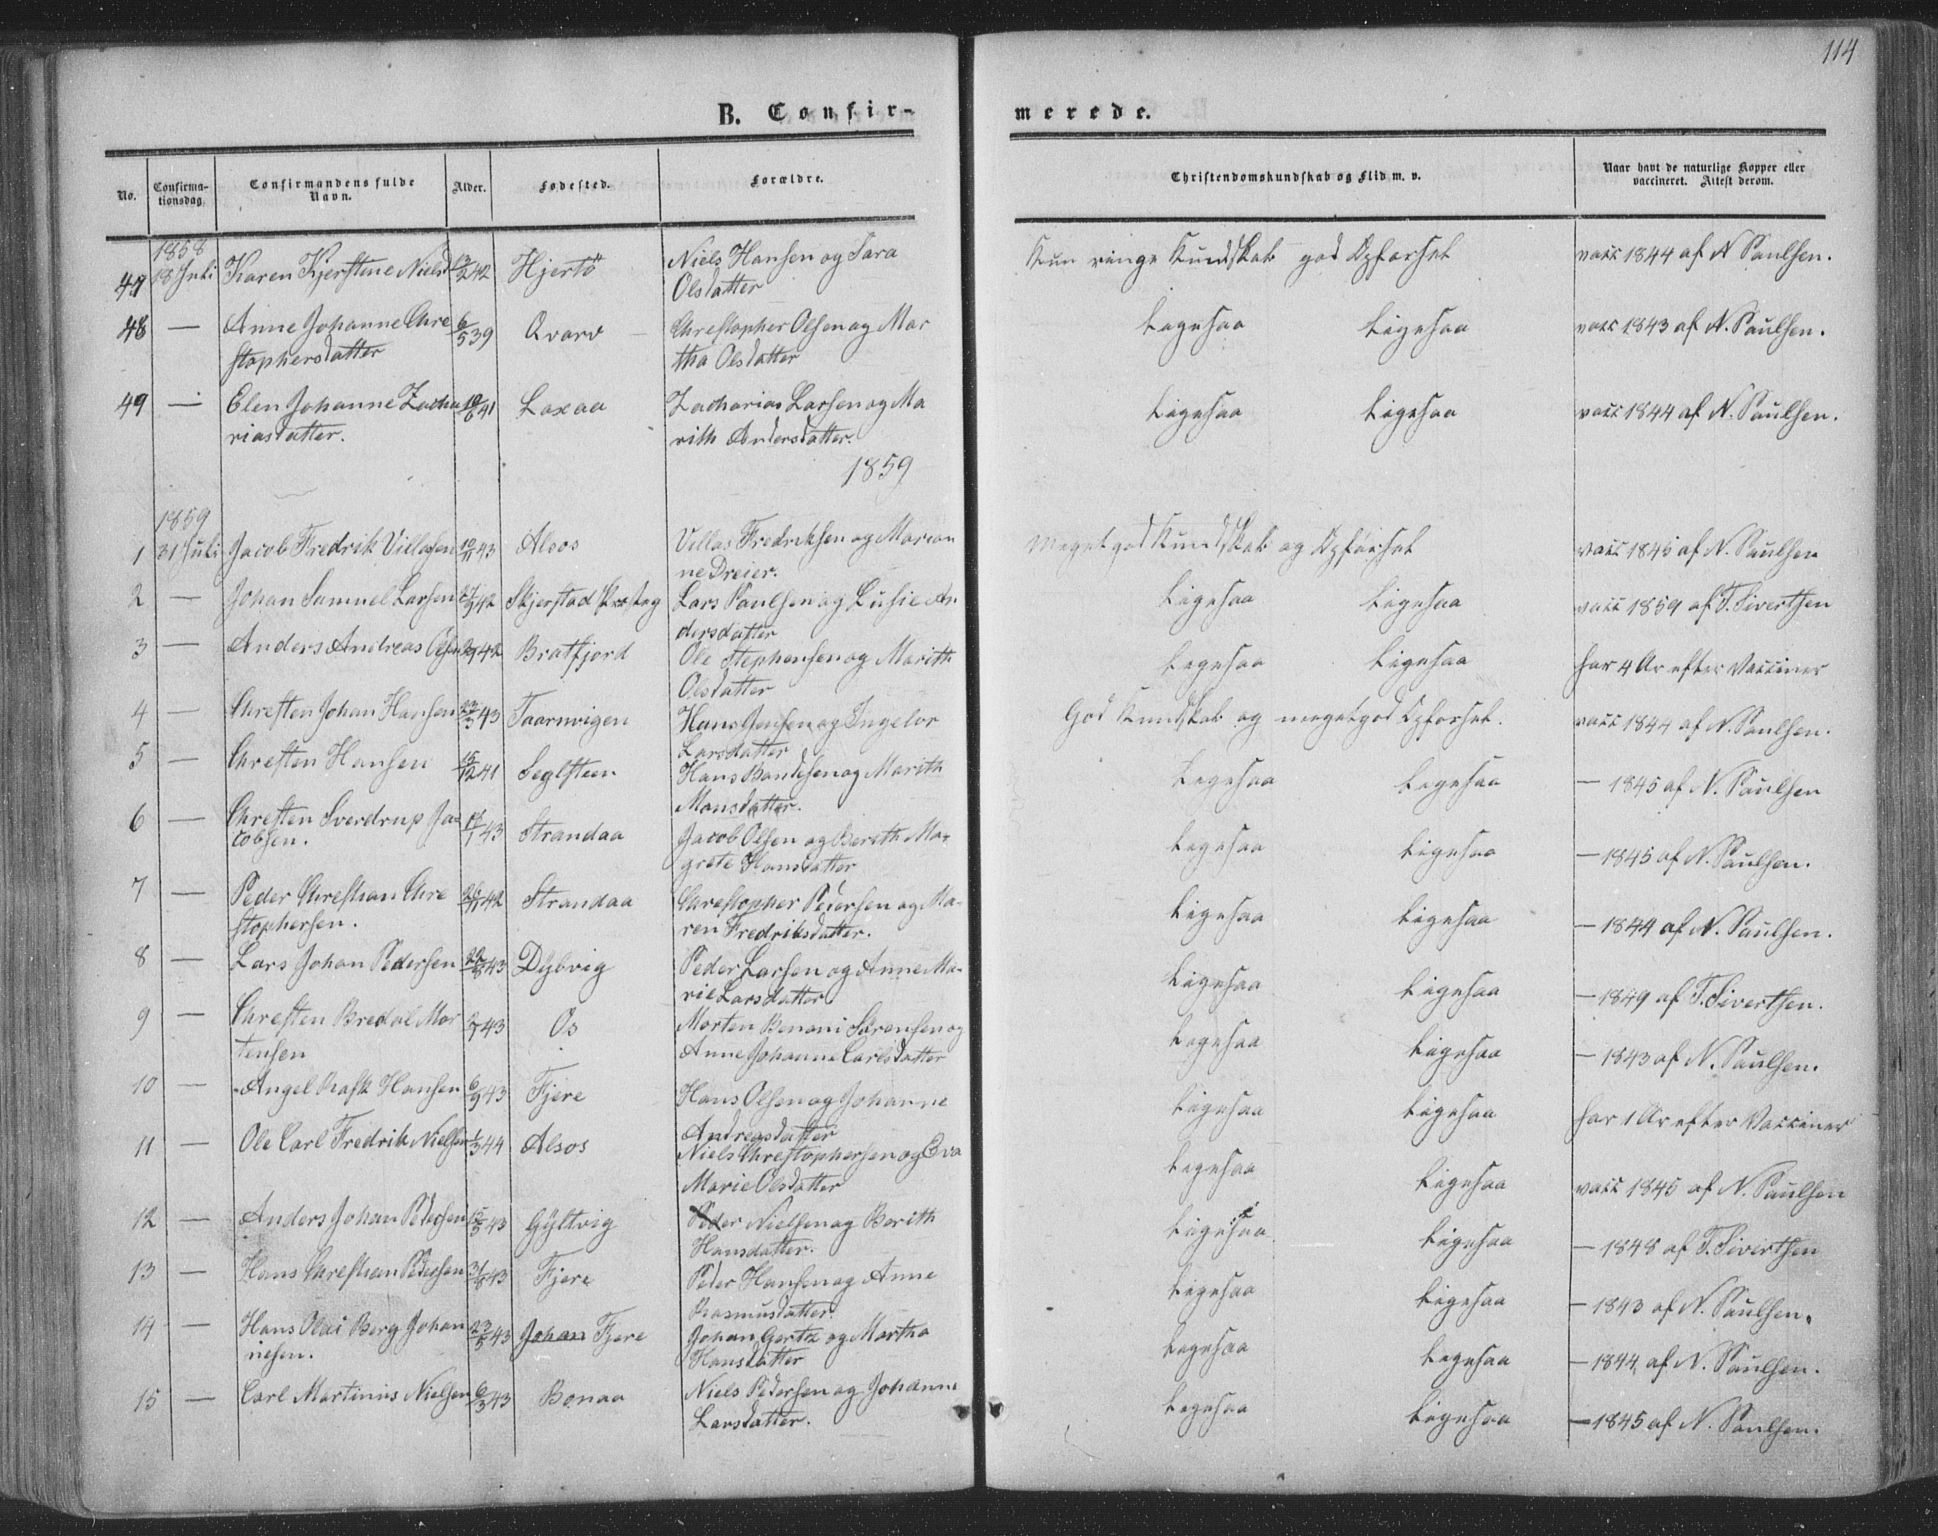 114
B. Confir-
merede.
No.
Confirma-
tionsdag.
Confirmandens fulde
Navn.
Alder.
Fødested.
Forældre.
Christendomskundskab og Flid m. v.
Naar havt de naturlige Kopper eller
vaccineret. Attest derom.
1858
47 18 Juli Karen Kjerstine Nielsd 42 Hjertö Niels Hansen og Sara
Olsdatter
Kun ringe Kundskab god Opførsel vacc 1844 af N Paulsen.
48 — Anne Johanne Chri 6/5 39 Qvarv Christopher Olsen og Mar
stophersdatter tha Olsdatter
Ligesaa Ligesaa vacc 1843 af N. Paulsen.
49 — Elen Johanne Zacha 19/6 41 Laxaa Zacharias Larsen og Ma
riasdatter. rith Andersdatter.
Ligesaa Ligesaa vacc 1844 af N. Paulsen.
1859
1859
1 31 Juli Jacob Fredrik Villassen 10/11 43 Alsos Villas Fredriksen og Marian
ne Dreier.
Meget god Kundskab og Opførsel vacc 1845 af N. Paulsen
2 — Johan Samuel Larsen 42 Skjerstad Præsteg Lars Paulsen og Lusie An
dersdatter
Ligesaa Ligesaa vacc 1859 af T. Sivertsen
3 — Anders Andreas Olsen 42 Bratfjord Ole Stephensen og Marith
Olsdatter
Ligesaa Ligesaa har 4 Ar efter Vacciner
4 — Christen Johan Hansen 22/3 43 Taarnvigen Hans Jensen og Ingebor
Larsdatter
God Kundskab og meget god Opførsel. vacc 1844 af N. Paulsen.
5 — Christen Hansen 15/12 41 Seglsteen Hans Bendesen og Marith
Monsdatter.
Ligesaa Ligesaa — 1845 af N. Paulsen
6 — Christen Sverdrup Ja- 17/1 43 Strandaa Jacob Olsen og Berith Ma-
cobsen. grete Hansdatter
Ligesaa Ligesaa — 1845 af N. Paulsen.
7 — Peder Christian Chri 26/11 42 Strandaa Christopher Pedersen og Ma-
stophersen. ren Fredriksdatter.
Ligesaa Ligesaa — 1844 af N. Paulsen.
8 — Lars Johan Pedersen 22/8 43 Dybvig Peder Larsen og Anne Ma-
rie Larsdatter
Ligesaa Ligesaa — 1849 af T. Sivertsen.
9 — Christen Bredal Mor 43 Os Morten Benoni Sörensen og
tensen Anne Johanne Carlsdatter
Ligesaa Ligesaa — 1843 af N. Paulsen.
10 — Angel Rask Hansen 6/9 43 Fjere Hans Olsen og Johanne
Andreasdatter
Ligesaa Ligesaa har 1 Ar efter Vacciner
11 — Ole Carl Fredrik Nielsen 1/3 44 Alsos Niels Christophersen og Eva
Marie Olsdatter
Ligesaa Ligesaa vacc 1845 af N. Paulsen
12 — Anders Johan Pedersen 15/5 43 Gyltvig Peder Nielsen og Berith
Hansdatter.
Ligesaa Ligesaa — 1848 af T. Sivertsen
13 — Hans Christian Pedersen 31/8 43 Fjere Peder Hansen og Anne
Rasmusdatter.
Ligesaa Ligesaa — 1843 af N. Paulsen.
14 — Hans Olai Berg Johan 23/5 43 Johan Fjere Johan Gertz og Martha
nesen. Hansdatter
Ligesaa Ligesaa — 1844 af N. Paulsen.
15 — Carl Martinus Nielsen 6/3 43 Bonaa Niels Pedersen og Johanne
Larsdatter.
Ligesaa Ligesaa — 1845 af N. Paulsen.